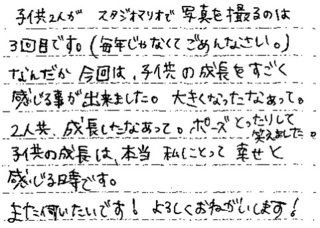 子供2人が スタジオマリオで写真を撮るのは
3回目です。(毎年じゃなくてごめんなさい。)
なんだか今回は、子供の成長をすごく
感じる事が出来ました。大きくなったなあって。
2人共、成長したなあって。ポーズとったりして
笑えました。
子供の成長は、本当 私にとって 幸せと
感じる時です。
また伺いたいです! よろしくおねがいします!